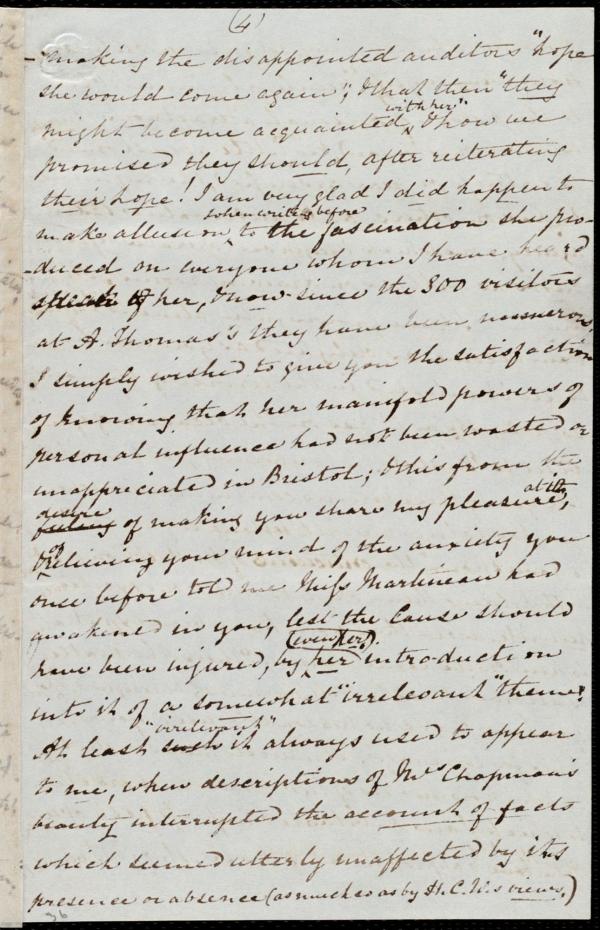 (4)
-making the disappointed auditors "hope
she would come again"; & that then "they
might become acquainted with her": & how we
promised they should, after reiterating
their hope! I am very glad I did happen to
make allusion when writing before to the fascination she pro-
-duced on everyone whom I have heard
speak of her, & now since the 300 visitors
at A. Thomas's they have been numerous,
I simply wished to give you the satisfaction
of knowing that her manifold powers of
personal influence had not been wasted or
unappreciated in Bristol; & this from the
desire feeling of making you share my pleasure, at it,
& of relieving your mind of the anxiety you
once before told me Miss Martineau had
awakened in you, lest the Cause should
have been injured, by (even her) her introduction
into it of a somewhat "irrelevant" theme.
At least such "irrelevant" it always used to appear
to me, when descriptions of Mrs Chapman's
beauty interrupted the account of facts
which seemed utterly unaffected by its
presence or absence (as much so as by H.C.W.s views.)
36